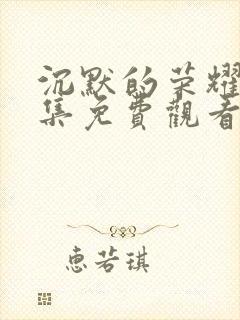 沉默的荣耀
集免費觀看
惠若琪